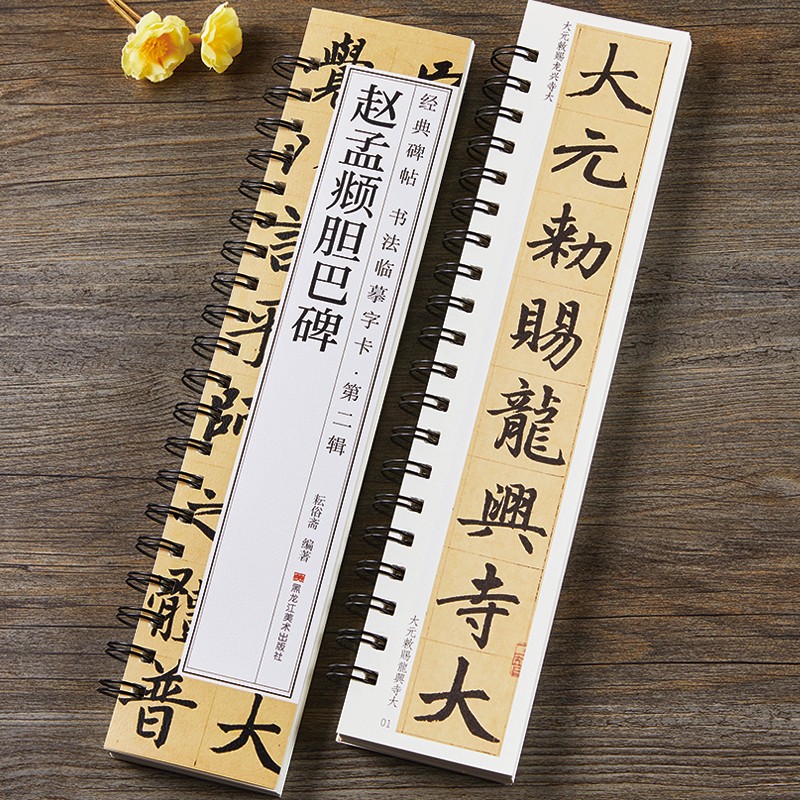 经典碑帖 书法临摹字卡·第二辑
赵孟𫖯胆巴碑
耘俗斋 编著
黑龙江美术出版社
師之體普
大
大元敕赐龙兴寺大
大元勑賜龍興寺大
大元敕賜龍興寺大
01